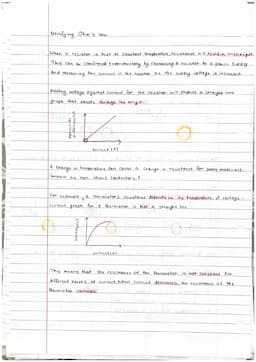 Verifying Ohm's law
When a resistor is kept at constant temperature, resistance will remain unchanged.
This can be confirmed experimentally by connecting a resistor to a power supply
and measuring the current in the resistor as the supply voltage is increased
Plotting voltage against current for the resistor will produce a straight-line
graph that passes through the origin.
current (A)
A change in temperature can cause a change in resistance for some materials
known as non-ohmic conductors.
For example, a thermistor's resistance depends on its temperature. A voltage-
current graph for a thermistor is not a straight line
current(A)
This means that the resistance of the thermistor is not constant for
different values of current. When current decreases, the resistance of the
thermistor